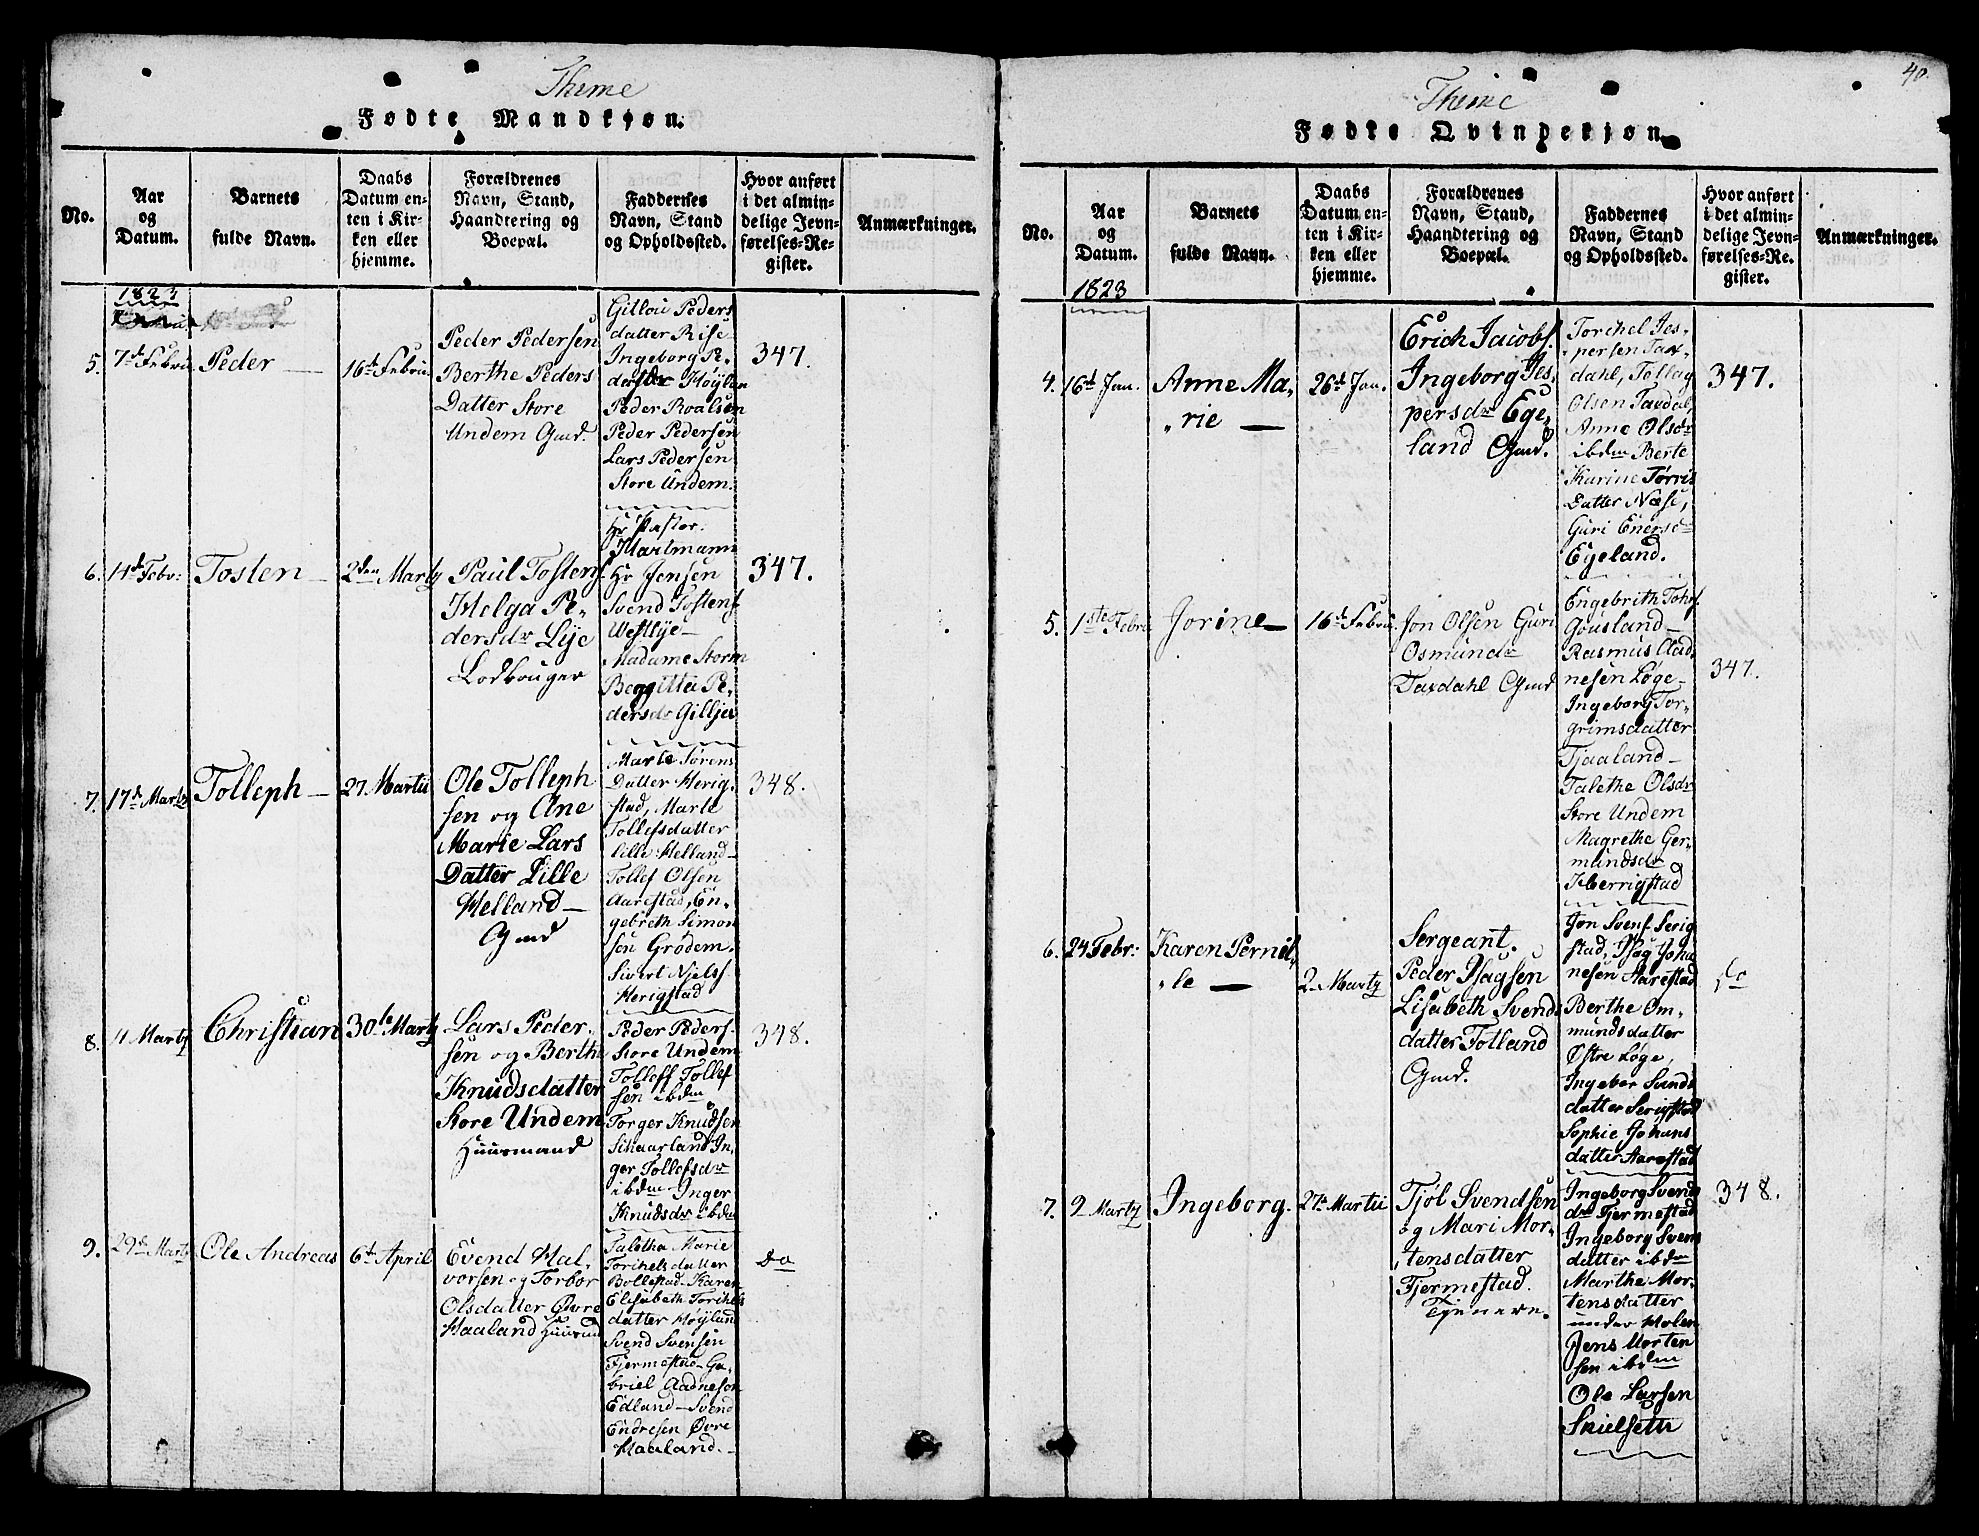 Thime
Fødte Mandkjøn.
No.
Aar
og
Datum.
Barnets
fulde Navn.
Daabs
Datum en-
ten i Kir-
ken eller
hjemme.
Forældrenes
Navn, Stand,
Haandtering og
Boepæl.
Faddernes
Navn, Stand
og Opholdssted.
Hvor anført
i det almin-
delige Jevn-
førelses-Re-
gister.
Anmærkninger.
1823
5.
7d Febru
Peder —
16d Febru.
Peder Pedersen
Berthe Peders
Datter Store
Undem Gmd.
Gillou Peders
datter Rise
Ingeborg Pe-
dersdr Høyland
Peder Roalsen
Peder Pedersen
Lars Pedersen
Store Undem.
347.
6.
14d Febr:
Tosten —
2den Marty
Paul Tostens.
Helga Pe-
dersdr Lye
Lodbruger
Hr Pastor.
Hartmann
Hr Jensen
Svend Tostens.
Westlye —
Madame Storm
Bergitta Pe-
dersdr Gilljes
347.
7.
17d Marty
Tolleph —
27. Martii
Ole Tolleph
sen og Ane
Marie Lars
Datter Lille
Helland —
Gmd
Marte Sørens
Datter Herig-
stad, Marte
Tollefsdatter
lille Helland —
Tollef Olsen
Aarestad, En-
gebreth Simon
sen Grødem.
Sivert Niels.
Herigstad
348.
8.
11 Marty
Christian
30te Marty
Lars Peder-
sen og Berthe
Knudsdatter
Store Undem
Huusmand
Peder Peders.
Store Undem
Tolleff Tollef
sen ibdm
Torger Knudsen
Schaarland In-
ger Tollefsdr
ibdm Inger
Knudsdr ibdm
348.
9.
29d Marty
Ole Andreas
6d April
Evend Hal-
vorsen og Torbor
Olsdatter Øvre
Haaland Huusmd
Taletha Marie
Torkelsdatter
Bollestad Karen
Elisabeth Torkels
datter Høyland
Svend Svensen
Fjermestad — Ga-
briel Aadnesen
Edland — Svend
Endresen Øvre
Haaland. —
do
40.
Thime
Fødte Qvindekjøn.
No.
Aar
og
Datum.
Barnets
fulde Navn.
Daabs
Datum en-
ten i Kir-
ken eller
hjemme.
Forældrenes
Navn, Stand,
Haandtering og
Boepæl.
Faddernes
Navn, Stand
og Opholdssted.
Hvor anført
i det almin-
delige Jevn-
førelses-Re-
gister.
Anmærkninger.
1823
4.
16d Jan.
Anne Ma-
„rie —
26d Jan.
Erich Jacobs.
Ingeborg Jes-
persdr Ege-
land Gmd.
Torchel Jes-
persen Tax-
dahl, Tollag
Olsen Taxdal,
Anne Olsdr
ibdm Berte
Karine Tørris
Datter Næse,
Guri Enersd
Egeland.
347.
5.
1ste Febru
Jorine —
16d Febru.
Jon Olsen Guri
Osmundr
Taxdahl Gmd
Engebrith Tohs.
Gousland —
Rasmus Aad-
nesen Løge —
Ingeborg Tor-
grimsdatter
Tjaaland —
Talethe Olsdr
Store Undem
Magrethe Ger-
mundsdr
Herrigstad
347.
6.
24 Febr:
Karen Pernil-
„le —
2. Marty
Sergeant.
Peder Isagsen
Lisabeth Svends
datter Totland
Gmd.
Jon Svens. Serig
stad, Isag Joha
nesen Aarestad
Berthe Om-
mundsdatter
Østre Løge,
Ingebor Svends
datter Serigstad
Sophie Johans
datter Aarestad
do
7.
9 Marty
Ingeborg.
27de Martii
Tjøl Svendsen
og Mari Mor-
tensdatter
Fjermestad.
Tjenere.
Ingeborg Svends
dr Fjermestad
Ingeborg Svens
datter ibdm
Marthe Mor-
tensdatter
under Holen
Jens Morten
sen ibdm
Ole Larsen
Skielseth
348.